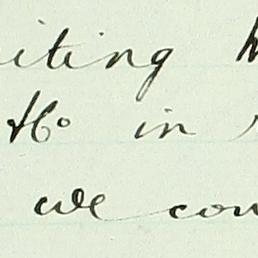 iting
Ho in
we con